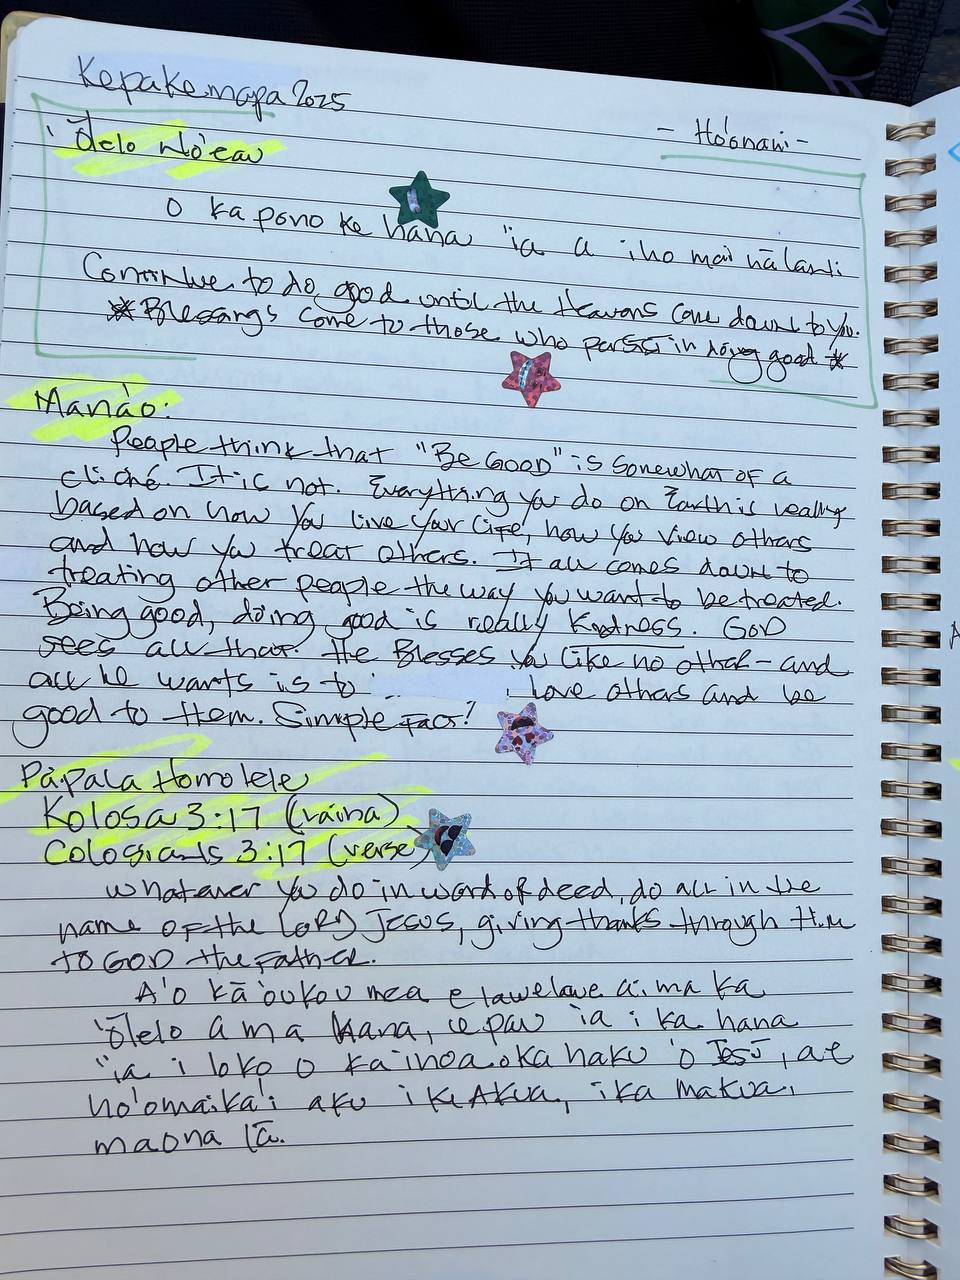 Kepakemapa 2025
- Ho'onani -
'Ōlelo No'eau
O ka pono ke hana 'ia a iho mai nā lani
Continue to do good until the Heavens come down to you.
* Blessings come to those who persist in doing good *
Mana'o:
People think that "Be GOOD" is somewhat of a
cliché. It is not. Everything you do on Earth is really
based on how you live your life, how you view others
and how you treat others. It all comes down to
treating other people the way you want to be treated.
Being good, doing good is really Kindness. GOD
sees all that. He Blesses you like no other - and
all he wants is to love others and be
good to them. Simple Fact!
Pāpala Homolele
Kolosa 3:17 (vaina)
Colossians 3:17 (verse)
Whatever you do in word of deed, do all in the
name of the LORD JESUS, giving thanks through Him
to GOD the FATHER.
A 'o kā 'oukou mea e lawelawe ai ma ka
'ōlelo a ma hana, e pau ia i ka hana
'ia i loko o ka inoa o ka haku 'o Iesū, a e
ho'omaika'i aku i ke Akua, i ka makua,
ma ona lā.